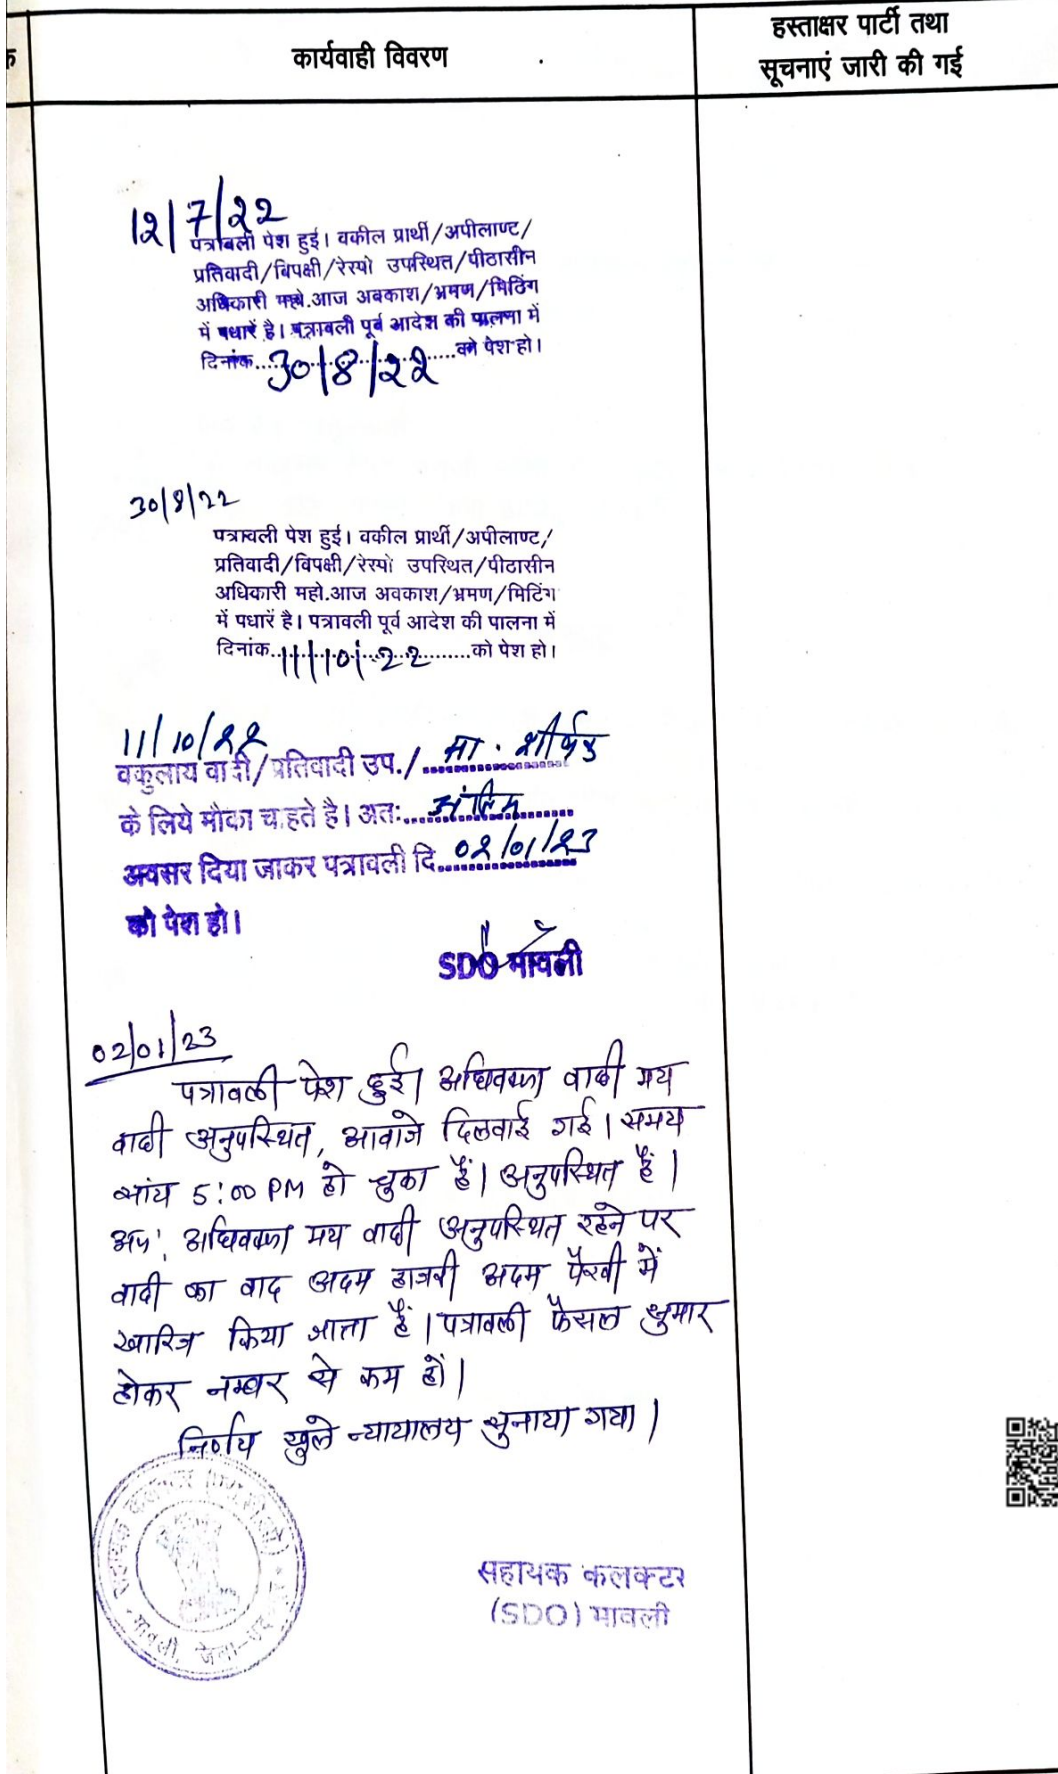 क
कार्यवाही विवरण
हस्ताक्षर पार्टी तथा
सूचनाएं जारी की गई
12/7/22
पत्रावली पेश हुई। वकील प्रार्थी/अपीलाण्ट/
प्रतिवादी/विपक्षी/रेस्पो उपस्थित/पीठासीन
अधिकारी महो.आज अवकाश/भ्रमण/मिटिंग
में पधारें है। पत्रावली पूर्व आदेश की पालना में
दिनांक....30/8/22....को पेश हो।
30/8/22
पत्रावली पेश हुई। वकील प्रार्थी/अपीलाण्ट/
प्रतिवादी/विपक्षी/रेस्पो उपस्थित/पीठासीन
अधिकारी महो.आज अवकाश/भ्रमण/मिटिंग
में पधारें है। पत्रावली पूर्व आदेश की पालना में
दिनांक..11/10/22......को पेश हो।
11/10/22
वकुलाय वादी/प्रतिवादी उप./
के लिये मौका चाहते है। अतः...अंतिम......
अवसर दिया जाकर पत्रावली दि..02/01/23
को पेश हो।
SDO मावली
02/01/23
पत्रावली पेश हुई। अधिवक्ता वादी मय
वादी अनुपस्थित, आवाजे दिलवाई गई। समय
सांय 5:00 PM हो चुका हैं। अनुपस्थित हैं।
अतः अधिवक्ता मय वादी अनुपस्थित रहने पर
वादी का वाद अदम हाजरी अदम पैरवी में
खारिज किया जाता हैं। पत्रावली फैसल शुमार
होकर नम्बर से कम हों।
निर्णय खुले न्यायालय सुनाया गया।
सहायक कलक्टर
मावली, जिला-
सहायक कलक्टर
(SDO) मावली